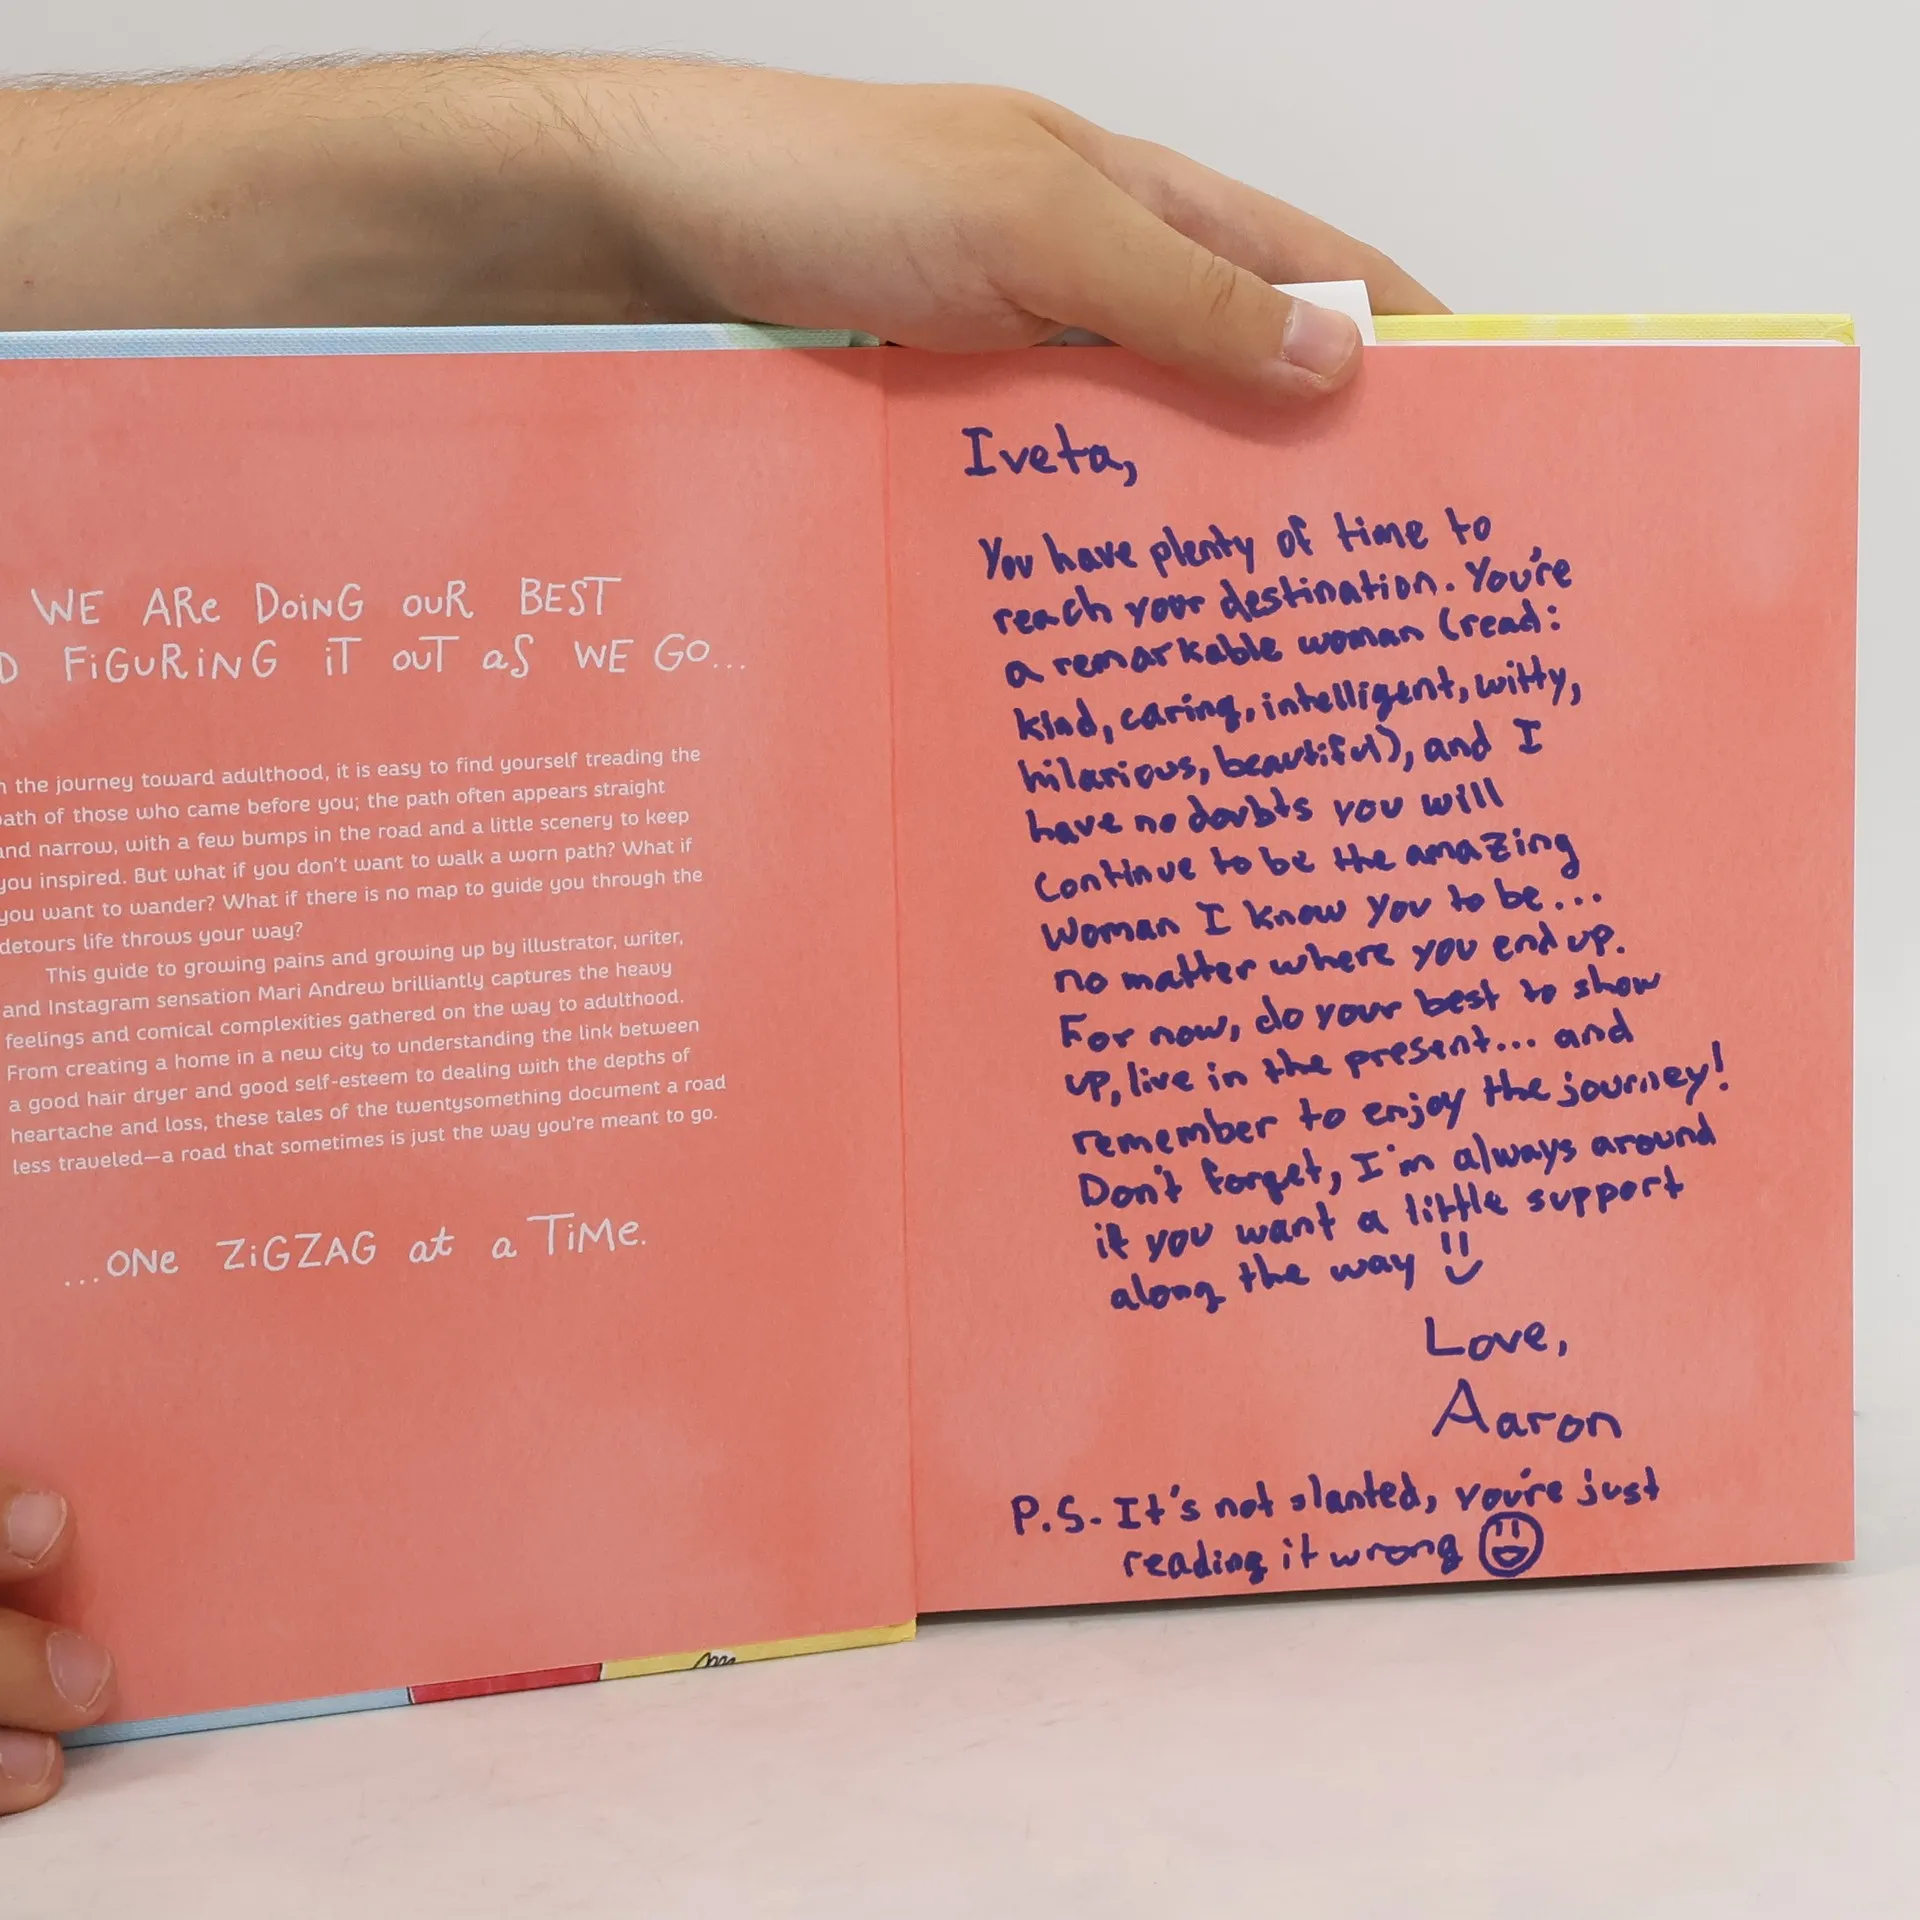 WE ARe DoiNG ouR BEST
FiGURiNG iT ouT aS WE GO...
the journey toward adulthood, it is easy to find yourself treading the
of those who came before you; the path often appears straight
and narrow, with a few bumps in the road and a little scenery to keep
you inspired. But what if you don't want to walk a worn path? What if
you want to wander? What if there is no map to guide you through the
detours life throws your way?
This guide to growing pains and growing up by illustrator, writer,
and Instagram sensation Mari Andrew brilliantly captures the heavy
feelings and comical complexities gathered on the way to adulthood.
From creating a home in a new city to understanding the link between
a good hair dryer and good self-esteem to dealing with the depths of
heartache and loss, these tales of the twentysomething document a road
less traveled—a road that sometimes is just the way you're meant to go.
...ONe ZiGZAG at a TiMe.
Iveta,
You have plenty of time to
reach your destination. You're
a remarkable woman (read:
kind, caring, intelligent, witty,
hilarious, beautiful), and I
have no doubts you will
continue to be the amazing
woman I know you to be...
no matter where you end up.
For now, do your best to show
up, live in the present... and
remember to enjoy the journey!
Don't forget, I'm always around
if you want a little support
along the way
Love,
Aaron
P.S. It's not slanted, you're just
reading it wrong